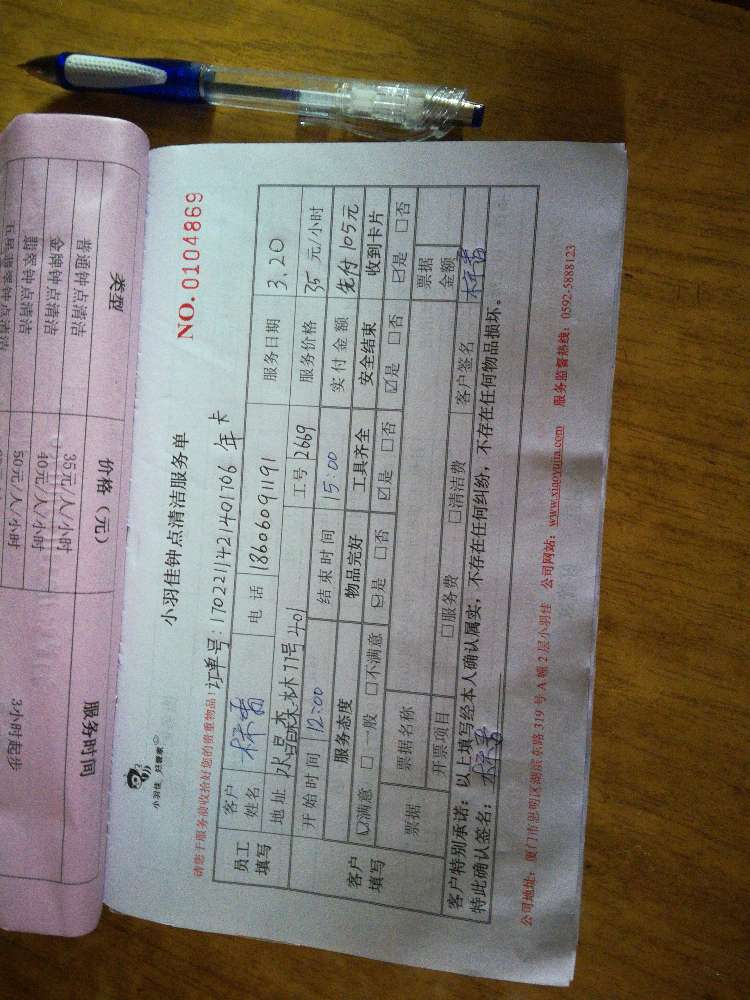 小羽佳 好管家
小羽佳钟点清洁服务单
NO. 0104869
请您于服务前收拾好您的贵重物品!
订单号:170221142140170 6 年卡
员工填写
客户姓名
电话 18606091191
服务日期 3.20
地址
11号401
工号 2669
服务价格 35 元/小时
开始时间 12:00
结束时间 15:00
实付金额 先付105元
客户填写
服务态度 物品完好 工具齐全 安全结束 收到卡片
☑满意 □一般 □不满意 ☑是 □否 ☑是 □否 ☑是 □否 ☑是 □否
票据 票据名称 票据金额
开票项目 □服务费 □清洁费 客户签名
客户特别承诺:以上填写经本人确认属实,不存在任何纠纷,不存在任何物品损坏。
特此确认签名:
公司地址:厦门市思明区湖滨东路 319 号 A 幢 2 层小羽佳 公司网站:www.xiaoyujia.com 服务监督热线:0592-5888123
类型 价格(元) 服务时间
普通钟点清洁 35元/人/小时 3小时起步
金牌钟点清洁 40元/人/小时
50元/人/小时